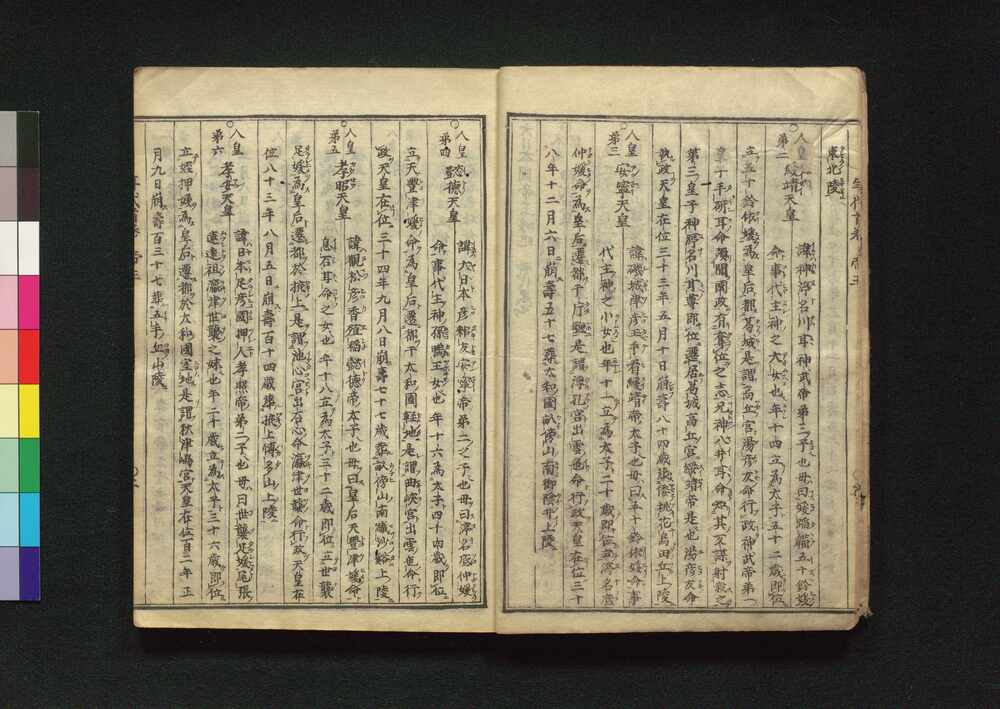 東北陵
人皇第二 綏靖天皇
諱神渟名川耳神武帝第二子也母曰媛蹈鞴五十鈴媛
命事代主神之大女也年十四立為太子五十二歳即位
立五十鈴依媛為皇后都葛城是謂高丘宮湯彦友命行政神武帝第一
皇子手研耳命濳関國政有奪位之志兄神八井耳命知其反謀射殺之
第三皇子神渟名川耳尊即位遷居葛城高丘宮綏靖帝是也湯彦友命
執政天皇在位三十三年五月十日崩壽八十四歳葬倭桃花鳥田丘上陵
人皇第三 安寧天皇
諱磯城津彦玉手看綏靖帝太子也母曰五十鈴依媛命事
代主神之小女也年十一立為太子二十歳即位立渟名底
仲媛命為皇后遷都片塩是謂浮孔宮出雲色命行政天皇在位三十
八年十二月六日崩壽五十七葬大和國畝傍山南御陰井上陵
人皇第四 懿德天皇
諱大日本彦耜友安寧帝第二之子也母曰渟名底仲媛
命事代主神孫鴨王女也年十六為太子四十四歳即位
立天豊津媛命為皇后遷都于大和國軽地是謂曲峡宮出雲色命行
政天皇在位三十四年九月八日崩壽七十七歳葬畝傍山南纎沙谿上陵
人皇第五 孝昭天皇
諱觀松彦香殖稲懿德帝太子也母曰皇后天豊津媛命
息石耳命之女也年十八立為太子三十二歳即位立世襲
足媛為皇后遷都於掖上是謂池心宮出石心命瀛津世襲命行政天皇在
位八十三年八月五日崩壽百十四歳葬掖上博多山上陵
人皇第六 孝安天皇
諱日本足彦國押人孝昭帝第二子也母曰世襲足媛尾張
連遠祖瀛津世襲之妹也年二十歳立為太子三十六歳即位
立姪押媛為皇后遷都於大和國室地是謂秋津嶋宮天皇在位百二年正
月九日崩壽百三十七葬玉手丘上陵